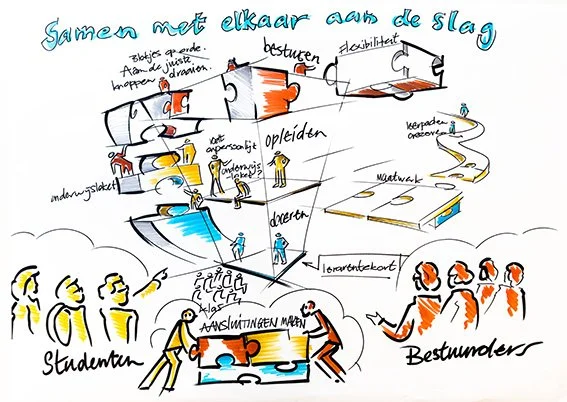 Samen met elkaar aan de slag
Blokjes op orde.
Aan de juiste
knoppen draaien.
besturen
Flexibiliteit
opleiden
leerpaden
onderwijsloket
onderwijs
-loket?
maatwerk
doceren
lerarentekort
klas
AANSLUITINGEN MAKEN
Studenten
Bestuurders